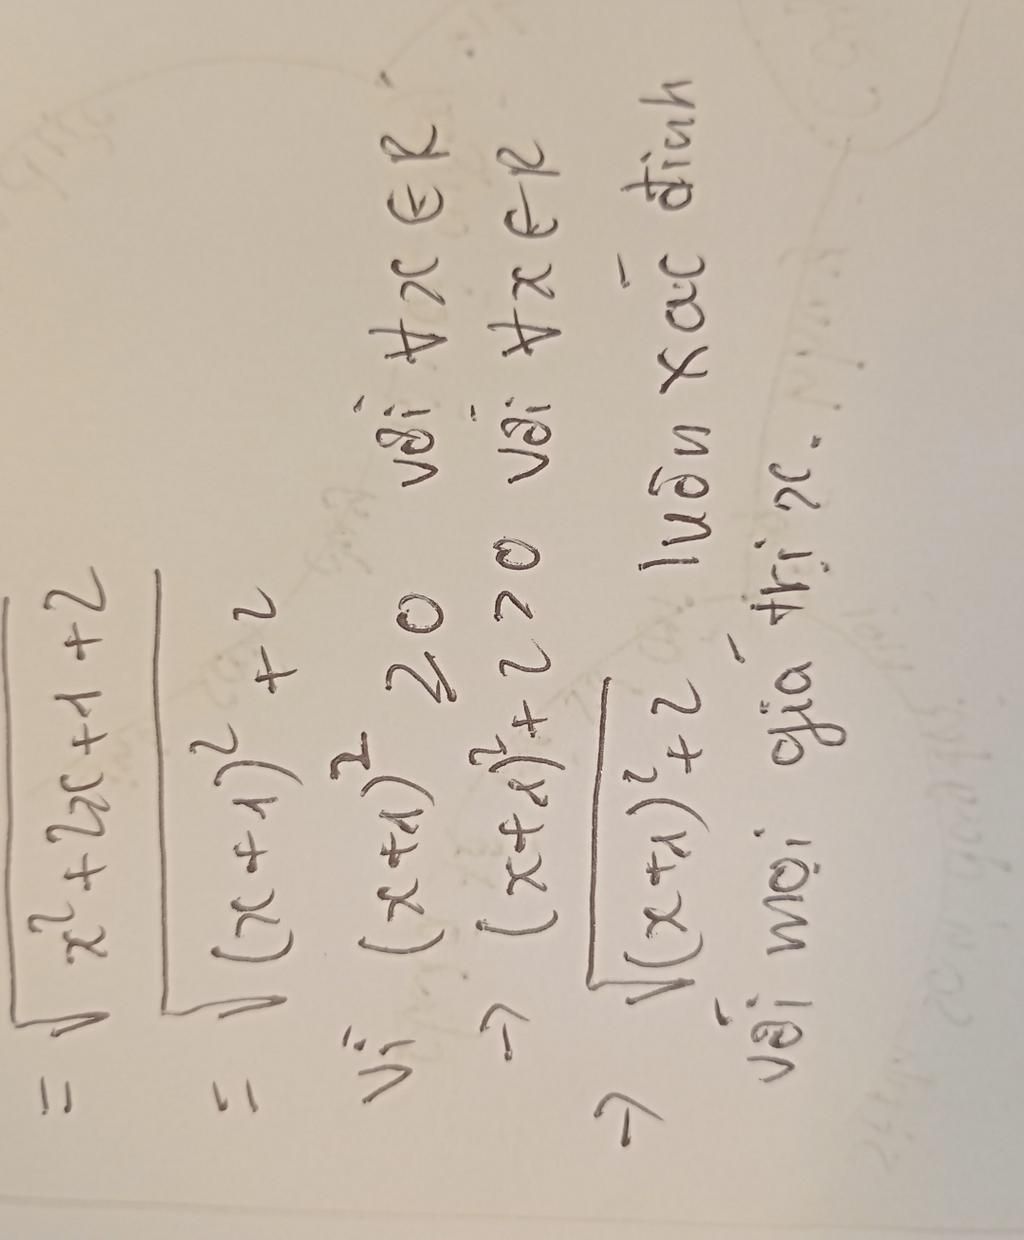 = √(x² + 2x + 1 + 2)
= √((x + 1)² + 2)
Vì (x+1)² ≥ 0 với ∀x ∈ R
→ (x+1)² + 2 > 0 với ∀x ∈ R
→ √((x+1)² + 2) luôn xác định
với mọi giá trị x.